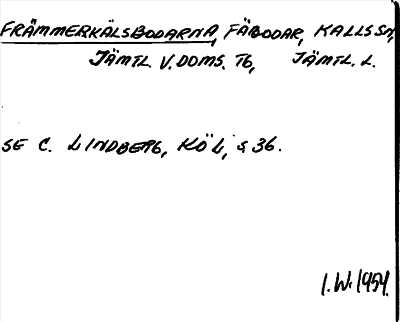 FRÄMMERKÄLSBODARNA, FÄBODAR, KALLS SN,
JÄMTL. V. DOMS. TG, JÄMTL. L.
SE C. LINDBERG, KÖL, S 36.
I.W. 1954.